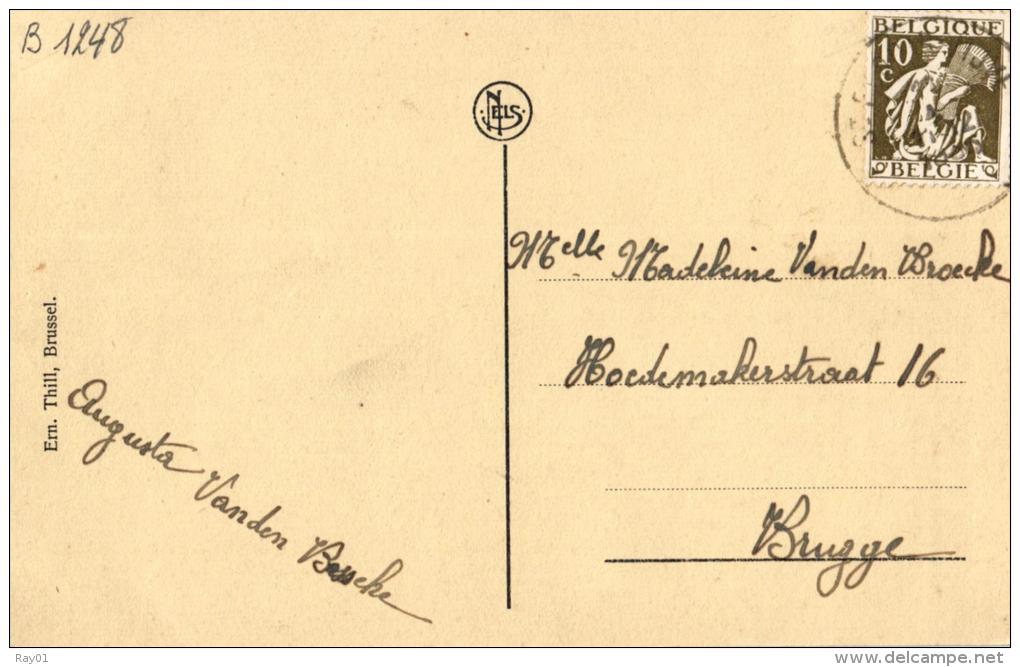 B 1248
BELGIQUE
10
C
BELGIE
NELS
Melle Madeleine Vanden Broecke
Hoedemakerstraat 16
Brugge
Ern. Thill, Brussel.
Augusta Vanden
Ray01
www.delcampe.net